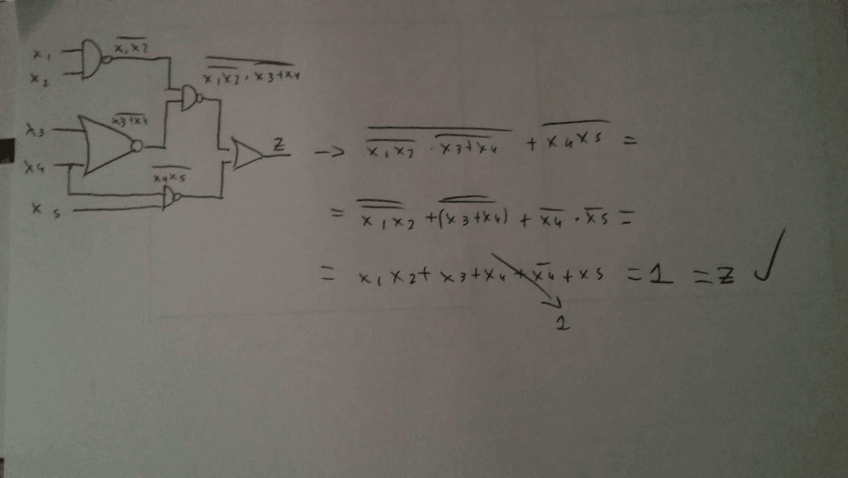 x₁
x₂
x̅₁x̅₂̅
x̅3̅+̅x̅4̅
x3
x4
x̅4̅x̅5̅
x5
Z
→ \overline{\overline{x₁x₂} · \overline{x3+x4}} + \overline{x4x5} =
= \overline{\overline{x₁x₂}} + \overline{\overline{(x3+x4)}} + \overline{x4} · \overline{x5} =
= x₁x2 + x3 + x4 + \overline{x4} + x5 = 1 = Z ✓
1